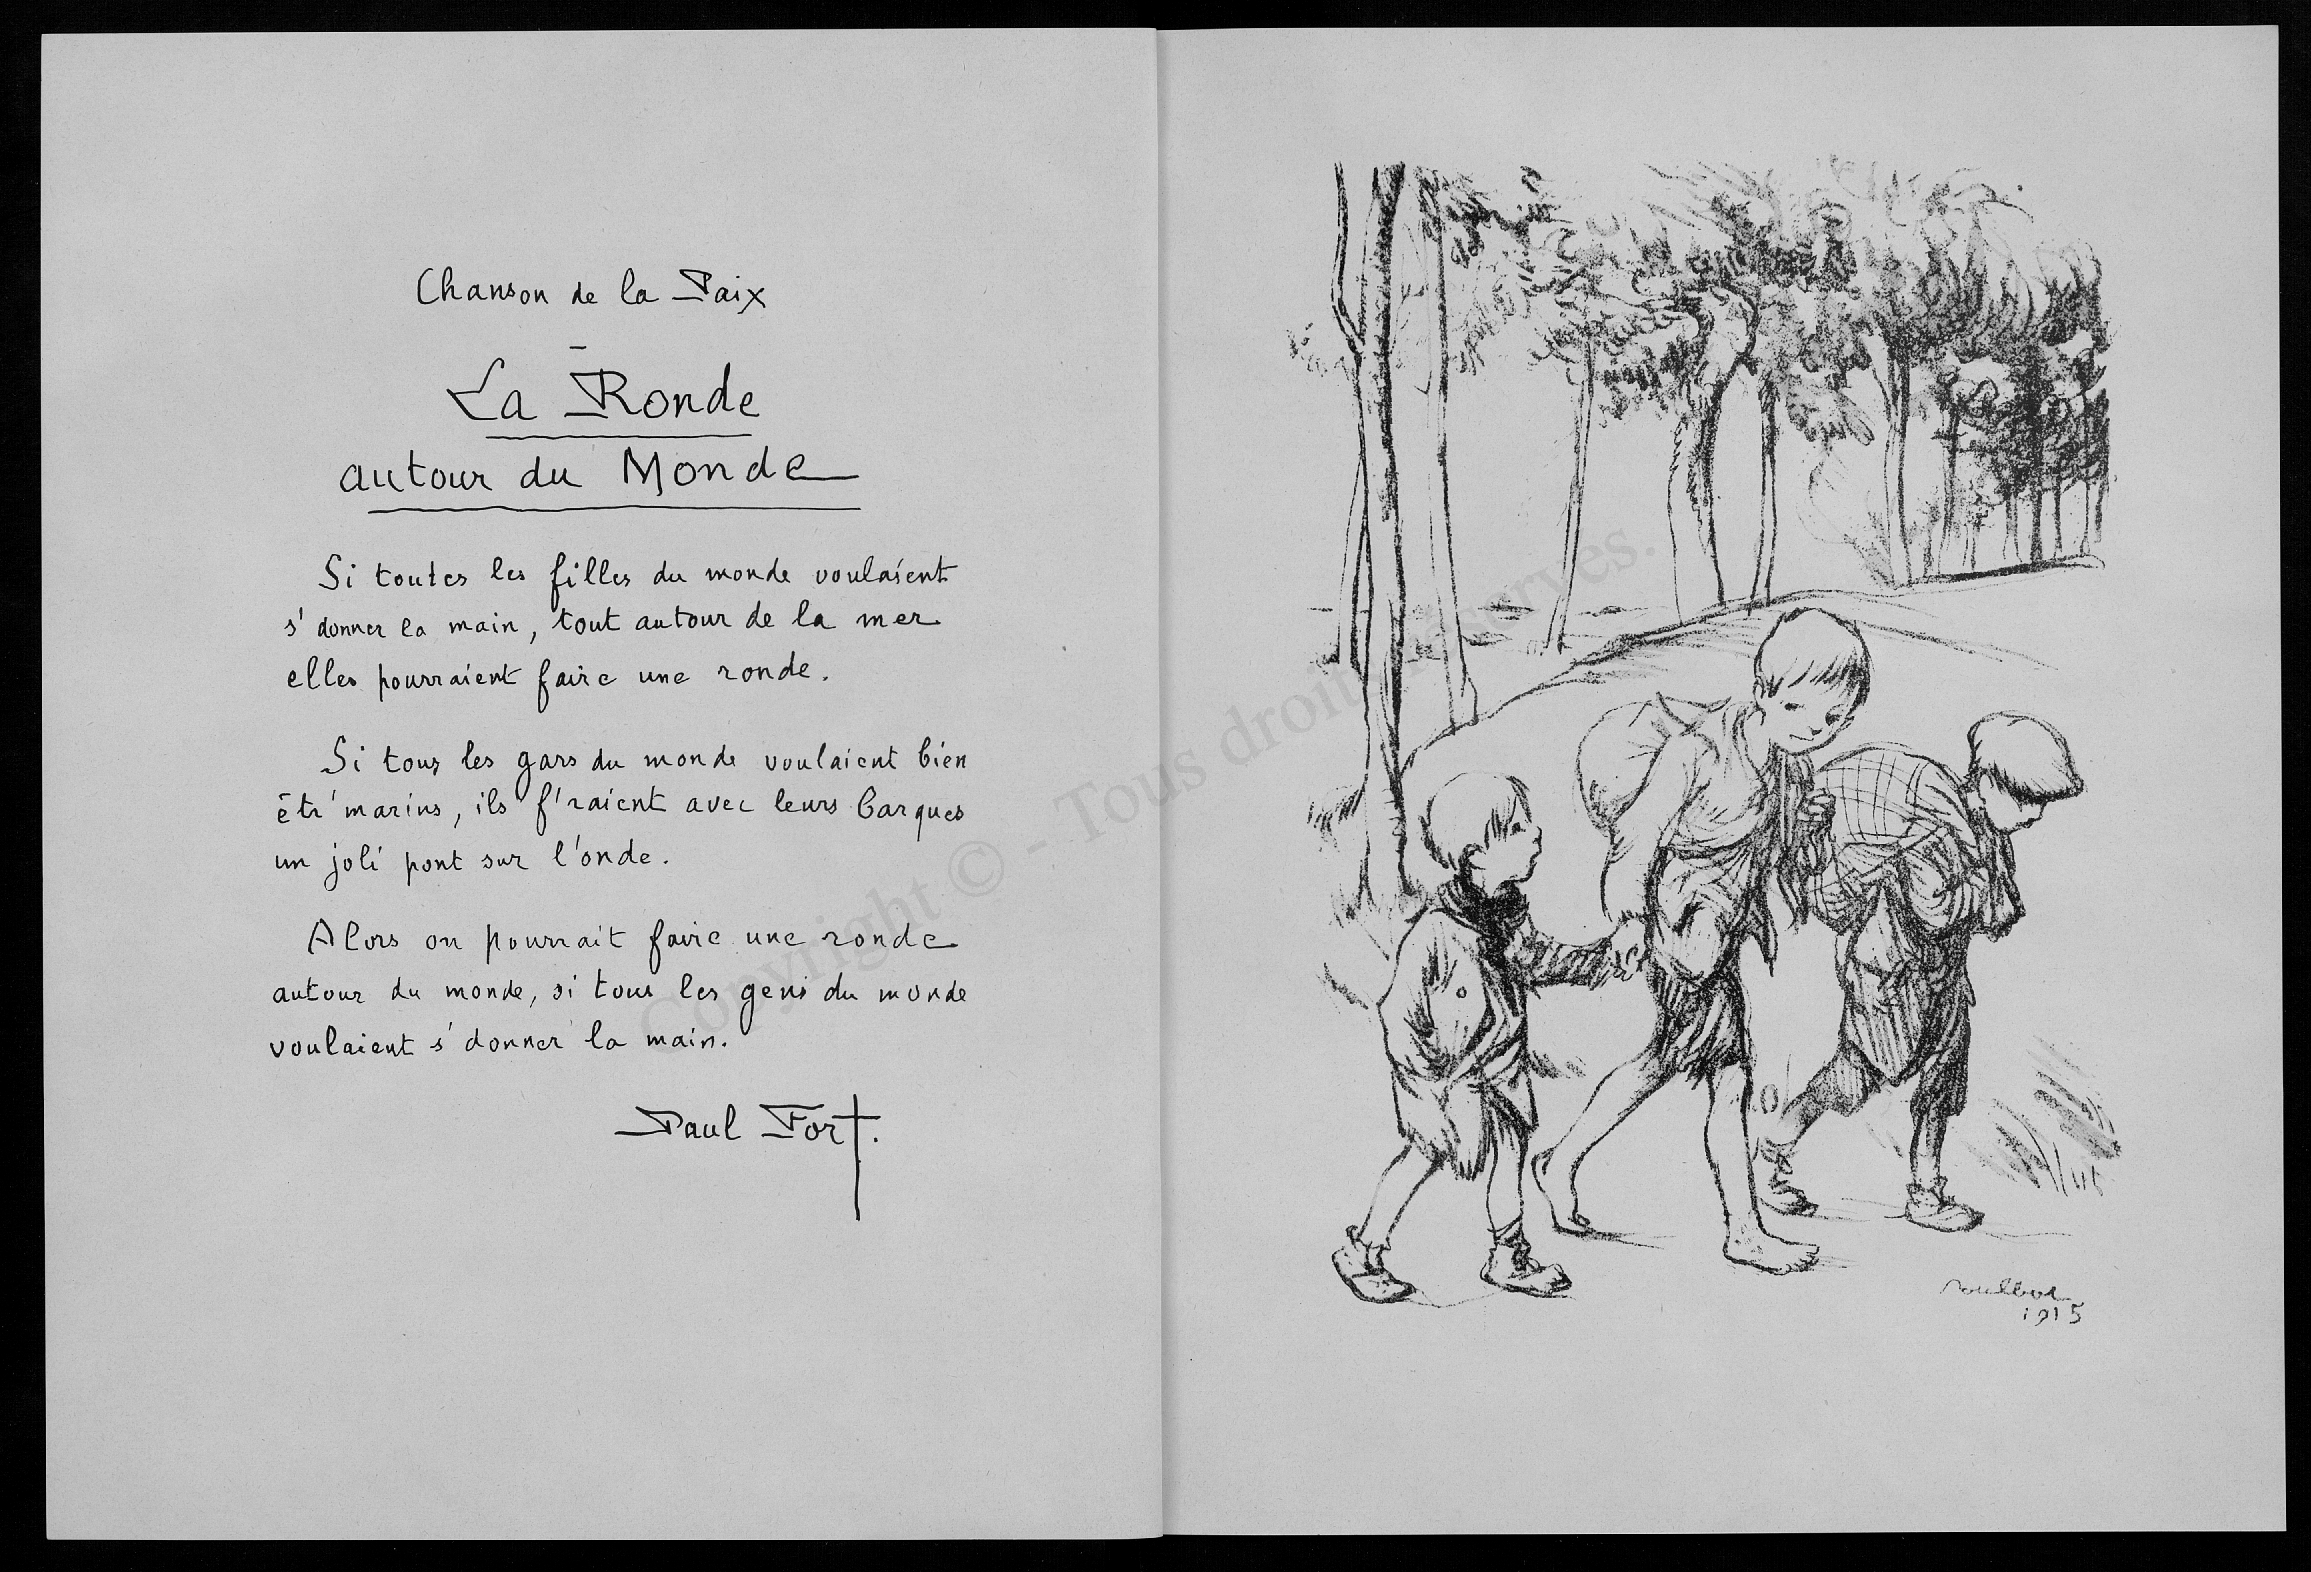 Chanson de la Paix
–
La Ronde
autour du Monde
Si toutes les filles du monde voulaient
s'donner la main, tout autour de la mer
elles pourraient faire une ronde.
Si tous les gars du monde voulaient bien
êtr'marins, ils f'raient avec leurs barques
un joli pont sur l'onde.
Alors on pourrait faire une ronde
autour du monde, si tous les gens du monde
voulaient s'donner la main.
Paul Fort.
Copyright © - Tous droits réservés.
Poulbot
1915